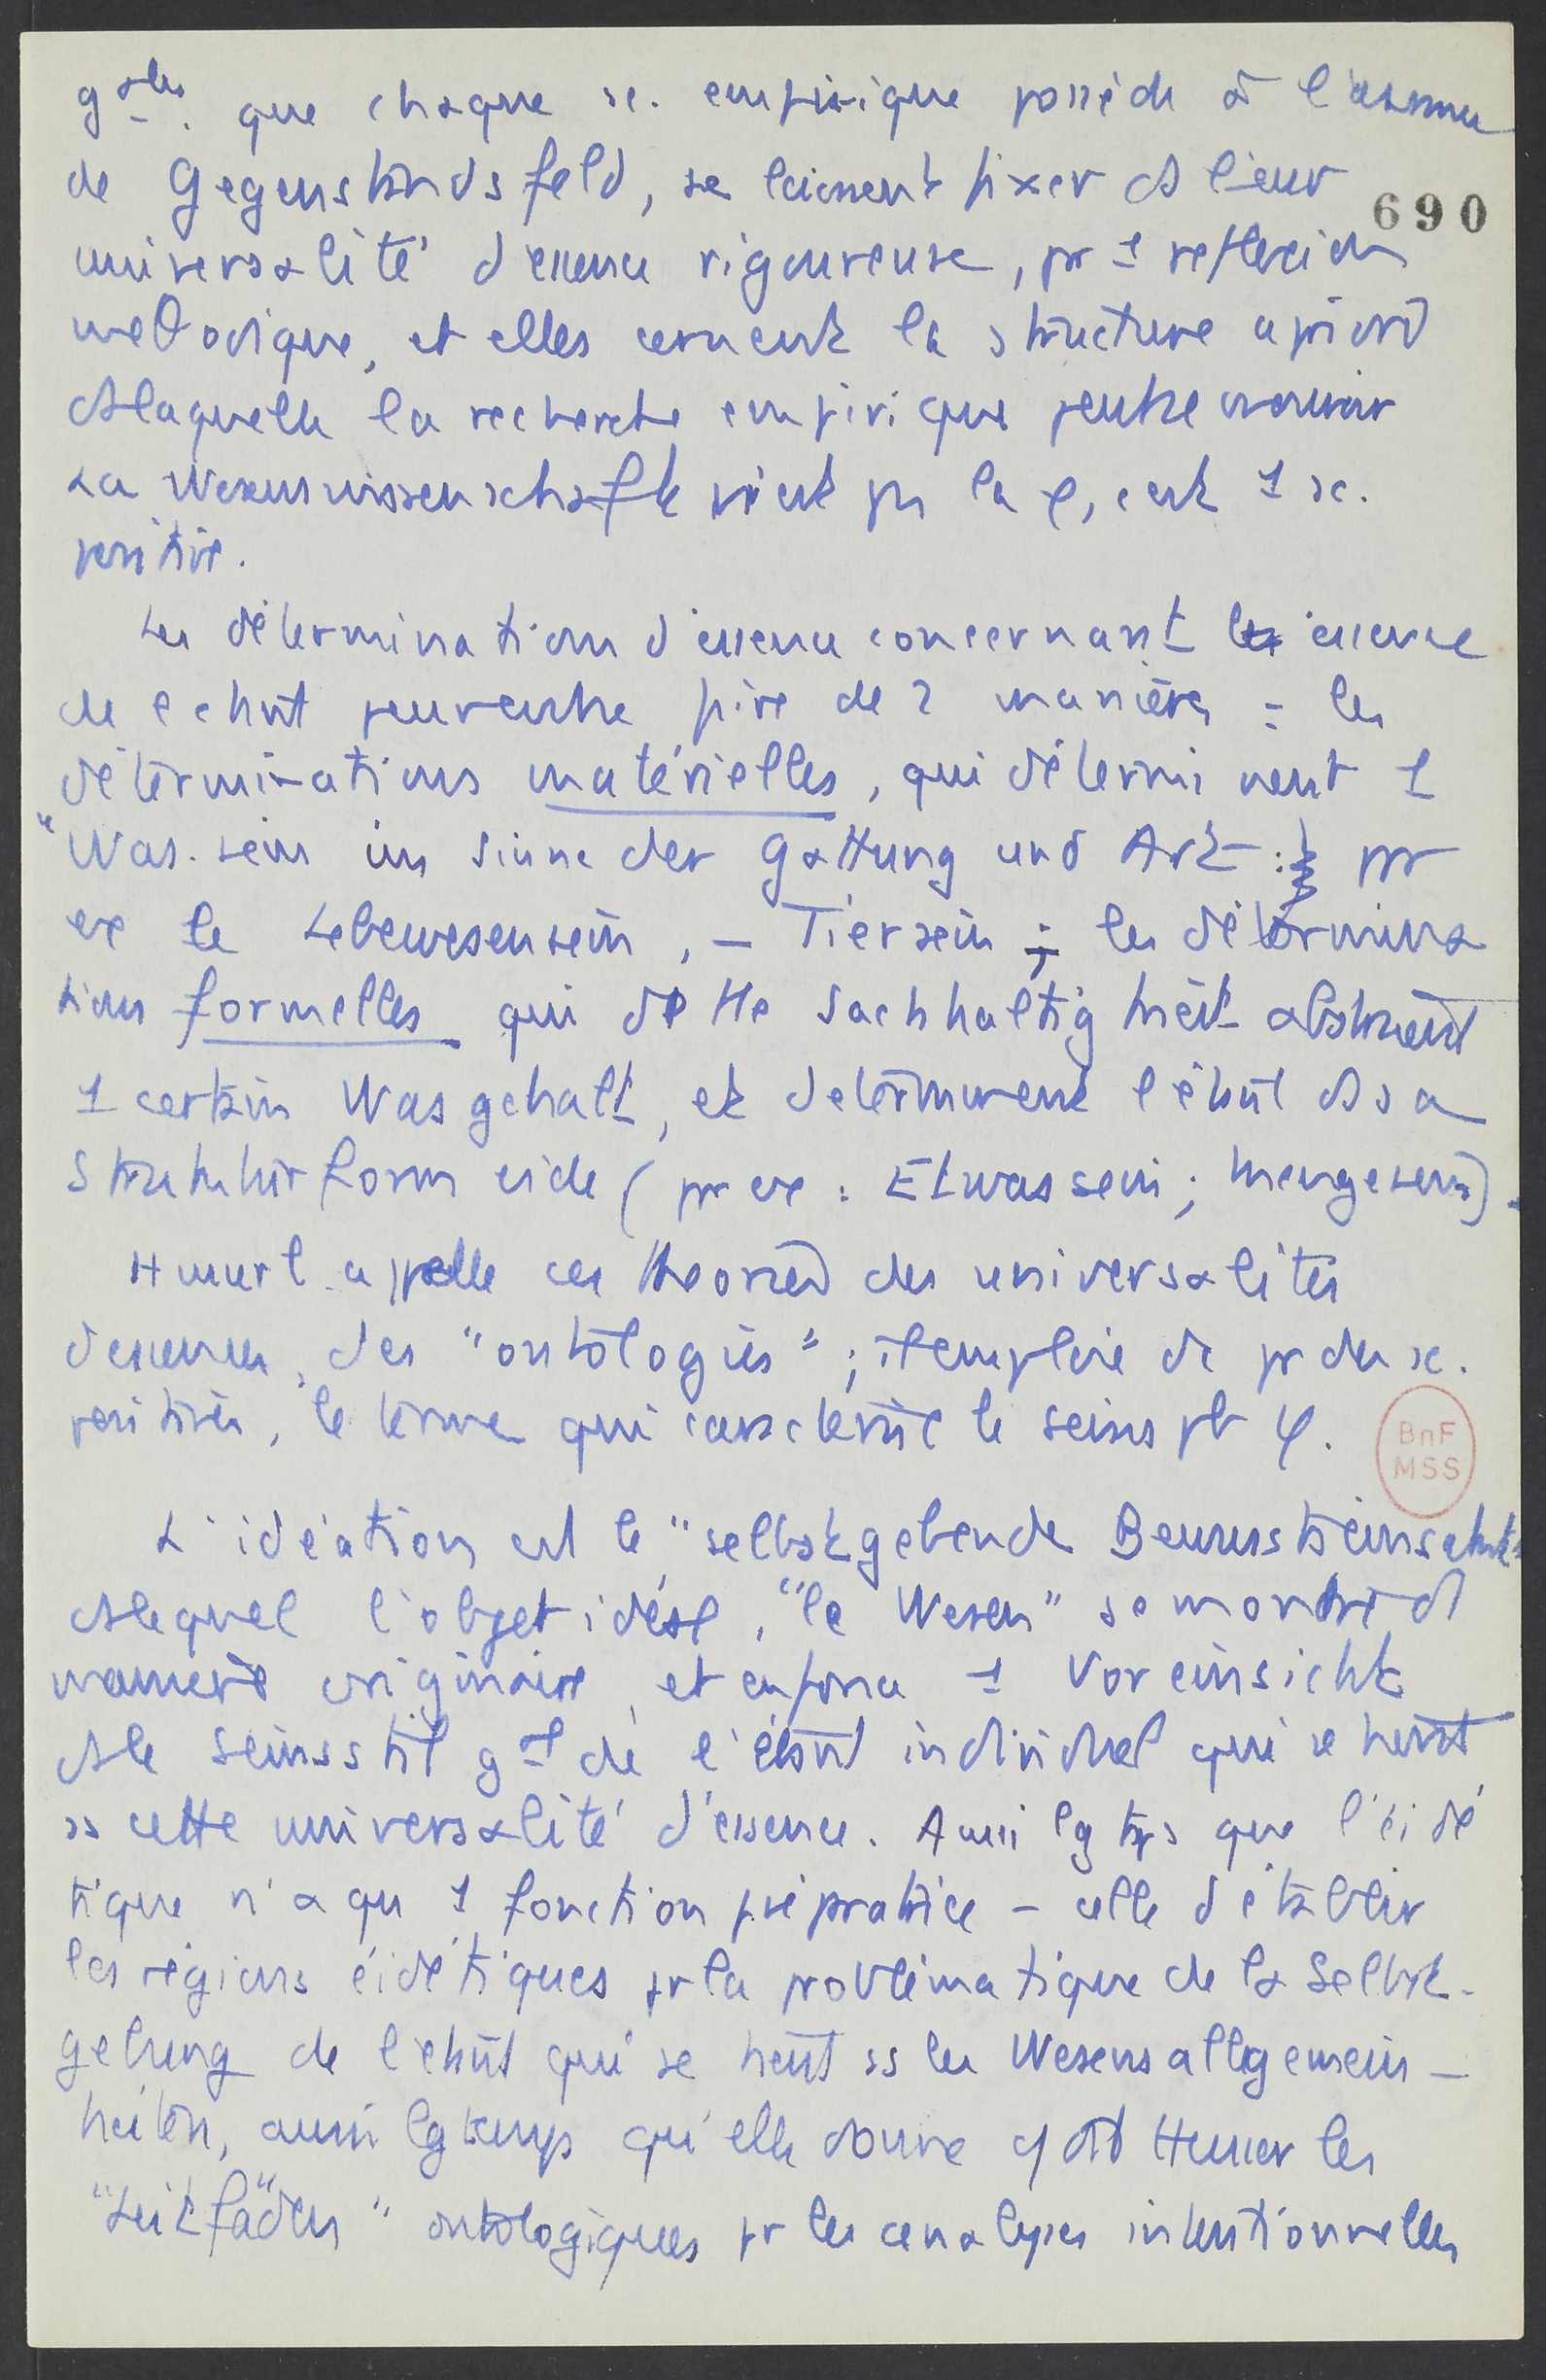 gales. que chaque sc. empirique possède à l'
de Gegenstandsfeld, se laissent fixer ds leur
690
universalité d'essence rigoureuse, par 1 réflexion
meθodique, et elles cernent la structure a priori
ds laquelle la recherche empirique peut se mouvoir
La Wesenswissenschaft n'est pas la φ, c'est 1 sc.
positive.
Les déterminations d'essence concernant l'essence
de l'étant peuvent être prises de 2 manières : les
déterminations matérielles, qui déterminent 1
"Was-sein im Sinne der Gattung und Art : par
ex le Lebewesensein, – Tiersein ; les détermina
tions formelles qui de tte Sachhaltigkeit abstraient
1 certain Wasgehalt, et déterminent l'étant ds sa
Strukturform vide (par ex : Etwas sein ; Menge sein).
Husserl appelle ces théories des universalités
d'essence, des "ontologies" ; il emploie dc pr des sc.
positives, le terme qui caractérise le seinspb φ.
BnF
MSS
L'idéation est le "selbstgebende Bewusstseinsakt"
ds lequel l'objet idéal, "le Wesen" se montre d
manière originaire, et en fera 1 Voreinsicht
ds le Seinsstil gal de l'étant individuel qui se tient
ss cette universalité d'essence. Aussi lgtps que l'éidé
tique n'a qu 1 fonction préparatrice – celle d'établir
les régions éidétiques pr la problématique de la Selbst-
gebung de l'étant qui se tient ss les Wesensallgemein-
heiten, aussi lgtemps qu'elle donne Husserl les
"Leitfäden" ontologiques pr les analyses intentionnelles